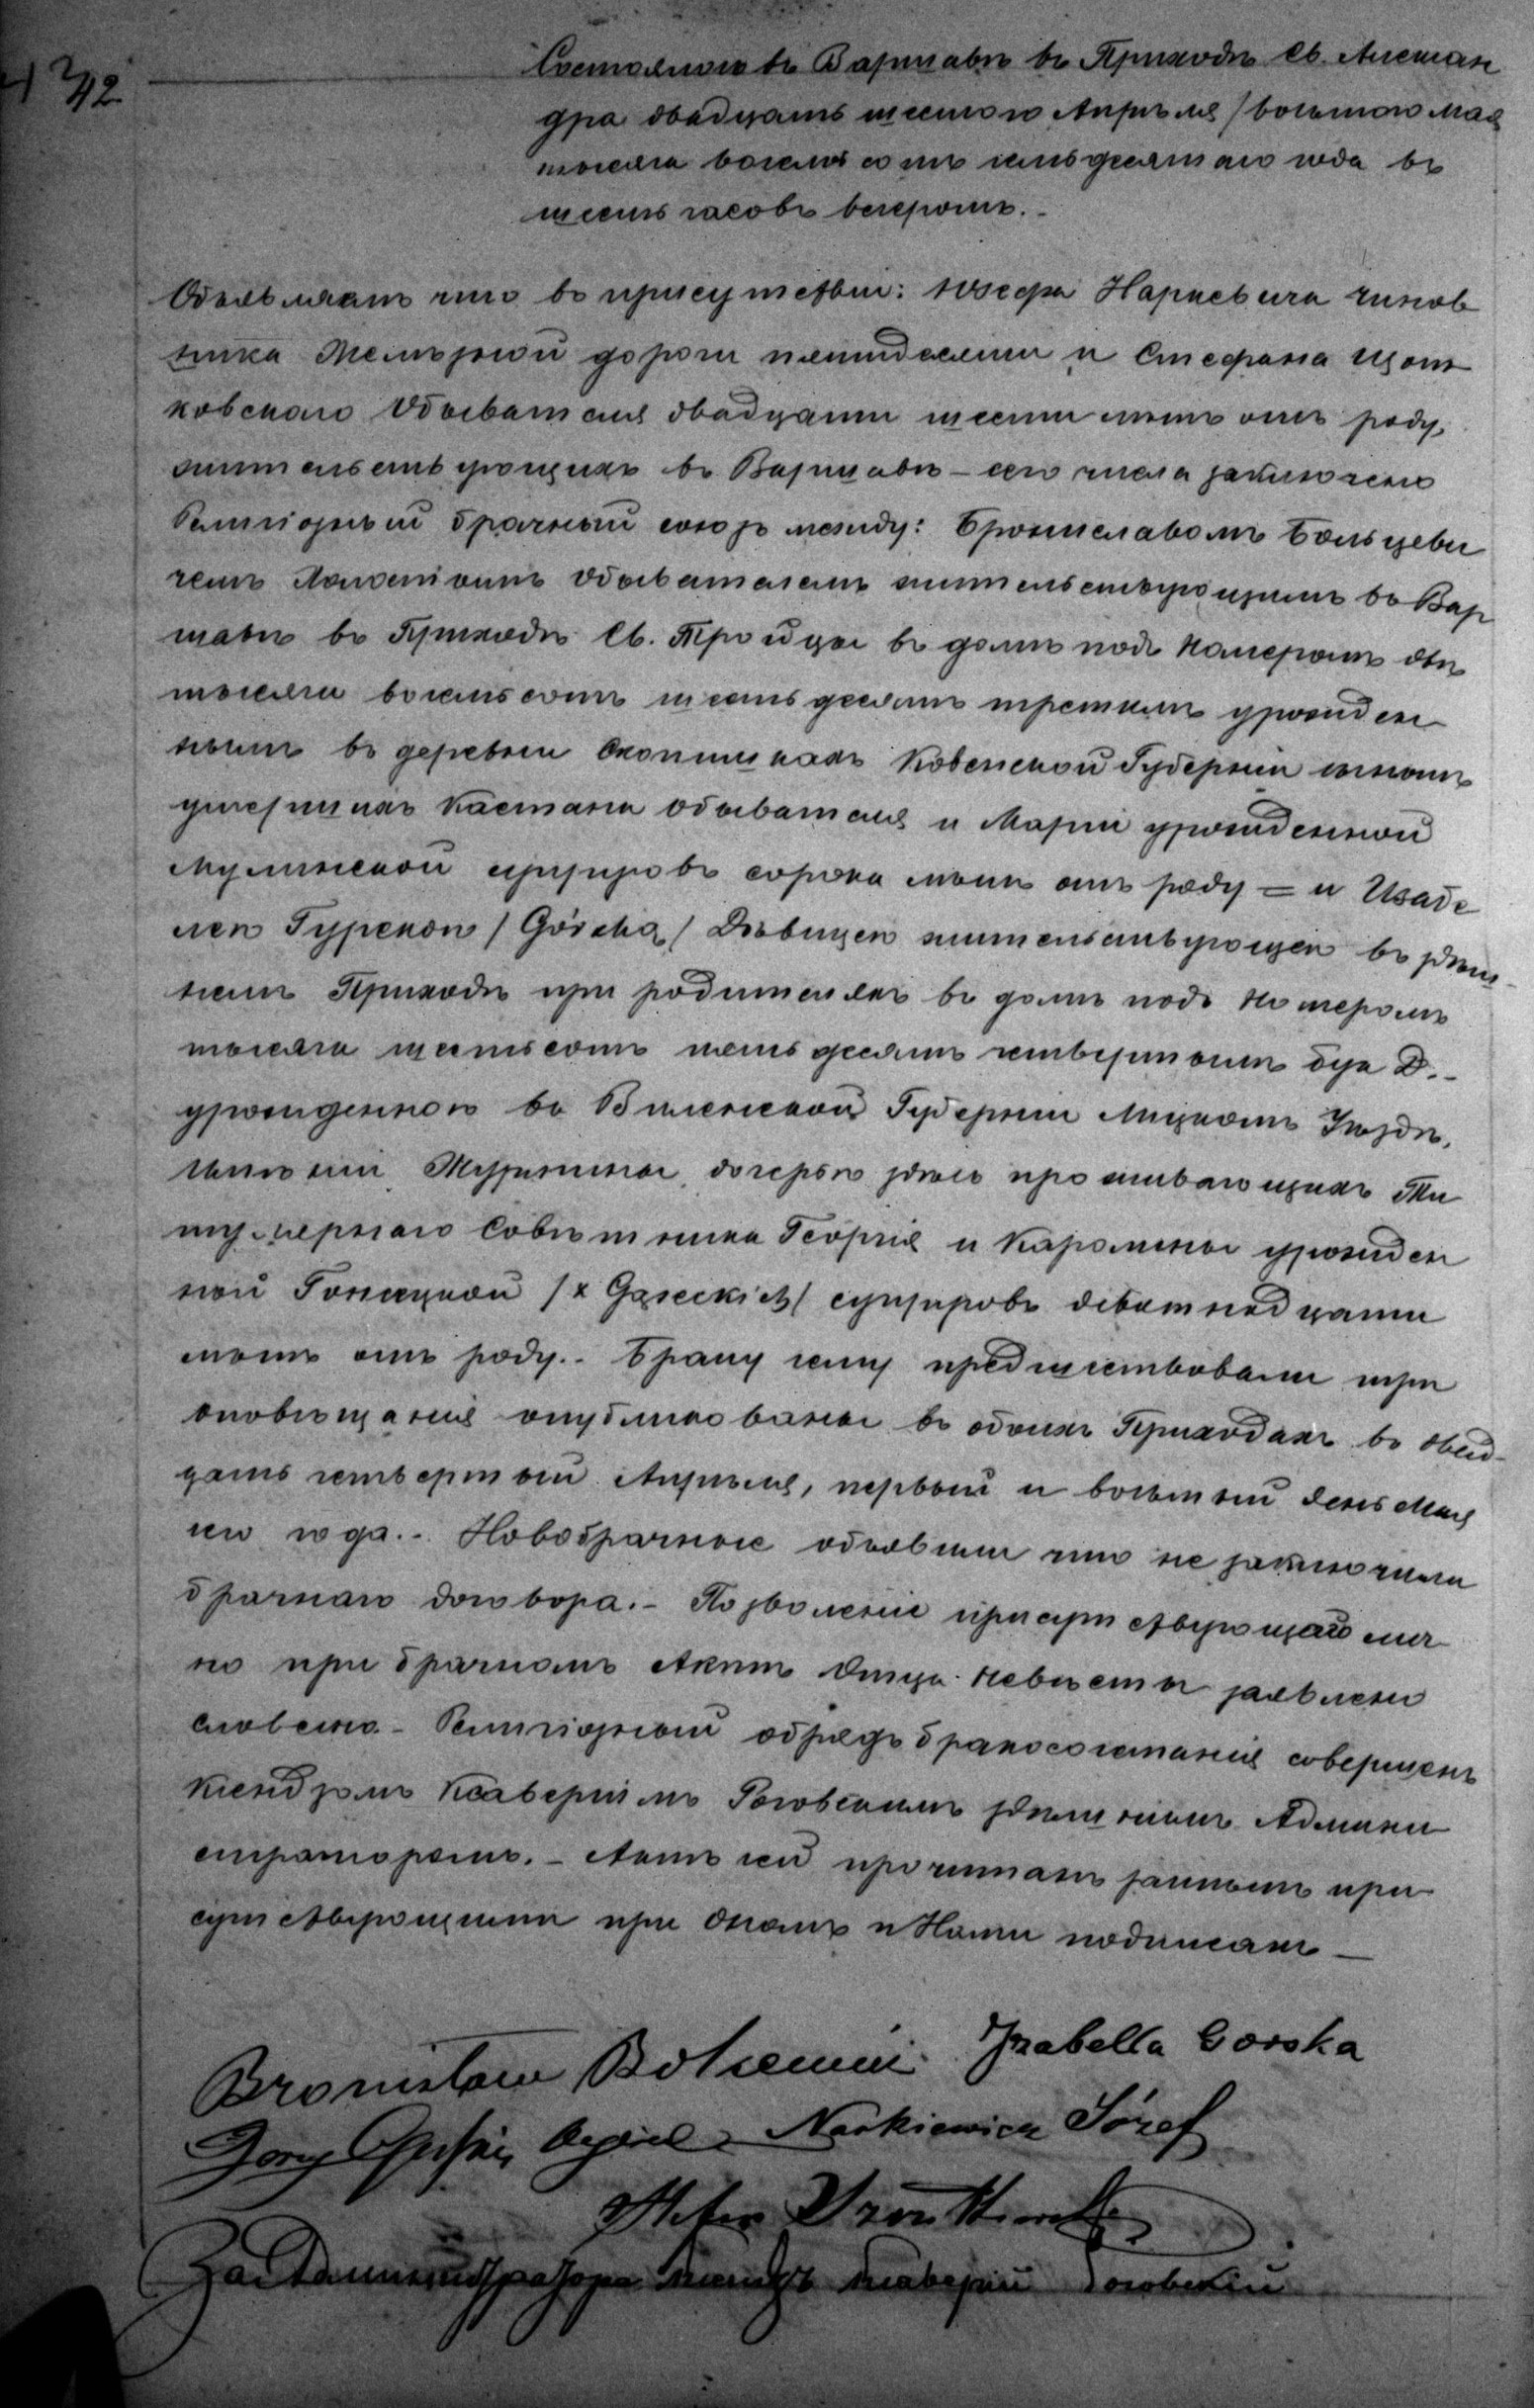 42
Состоялось въ Варшавѣ въ Приходѣ Св. Алексан
дра двадцать шестого Апрѣля /восьмого Мая
тысяча восемь сотъ восемьдесятаго года въ
шесть часовъ вечеромъ. -
Объявляемъ что въ присутствіи: Юзефа Наркевича чинов
ника Желѣзной дороги пятидесяти и Стефана
ковскаго Обывателя двадцати шести лѣтъ отъ роду,
жительствующихъ въ Варшавѣ - сего числа заключено
Религіозный брачный союзъ между: Брониславомъ Больцеви
чемъ Холостымъ Обывателемъ жительствующимъ въ Вар
шавѣ въ Приходѣ Св. Тройцы въ домѣ подъ номеромъ двѣ
тысячи восемьсотъ шестьдесятъ третьимъ урожден
нымъ въ деревни Скопишкахъ Ковенской Губерніи сыномъ
умершихъ Каетана обывателя и Маріи урожденной
Мулинской супруговъ сорока лѣтъ отъ роду = и Изабе
лею Гурскою /Górską/ Дѣвицею жительствующею въ здѣш
немъ Приходѣ при родителяхъ въ домѣ подъ номеромъ
тысяча шестьсотъ пятьдесятъ четвертымъ буа D. -
урожденною въ Виленской Губерніи Лидскомъ Уѣздѣ,
имѣніи дочерью здѣсь проживающихъ Ти
тулярнаго Совѣтника Георгія и Каролины урожден
ной Гонсецкой /z Gąseckich/ супруговъ девятнадцати
лѣтъ отъ роду. - Браку сему предшествовали три
оповѣщанія опубликованы въ обоихъ Приходахъ въ двад-
цать четвертый Апрѣля, первый и восьмый день Мая
сего года. - Новобрачные объявили что не заключили
брачнаго договора. - Позволеніе присутствующаго лич
но при брачномъ Актѣ Отца Невѣсты заявлено
словесно. - Религіозный обрядъ бракосочетанія совершенъ
Ксендзомъ Ксаверіемъ Роговскимъ здѣшнимъ Админи
страторомъ. - Актъ сей прочитанъ затѣмъ при
сутствующими при ономъ и Нами подписанъ -
Bronisław Bolcewicz Izabella Gorska
Jerzy Górski Narkiewicz Józef
Stefan
Администратора Ксендзъ Ксаверій Роговскій